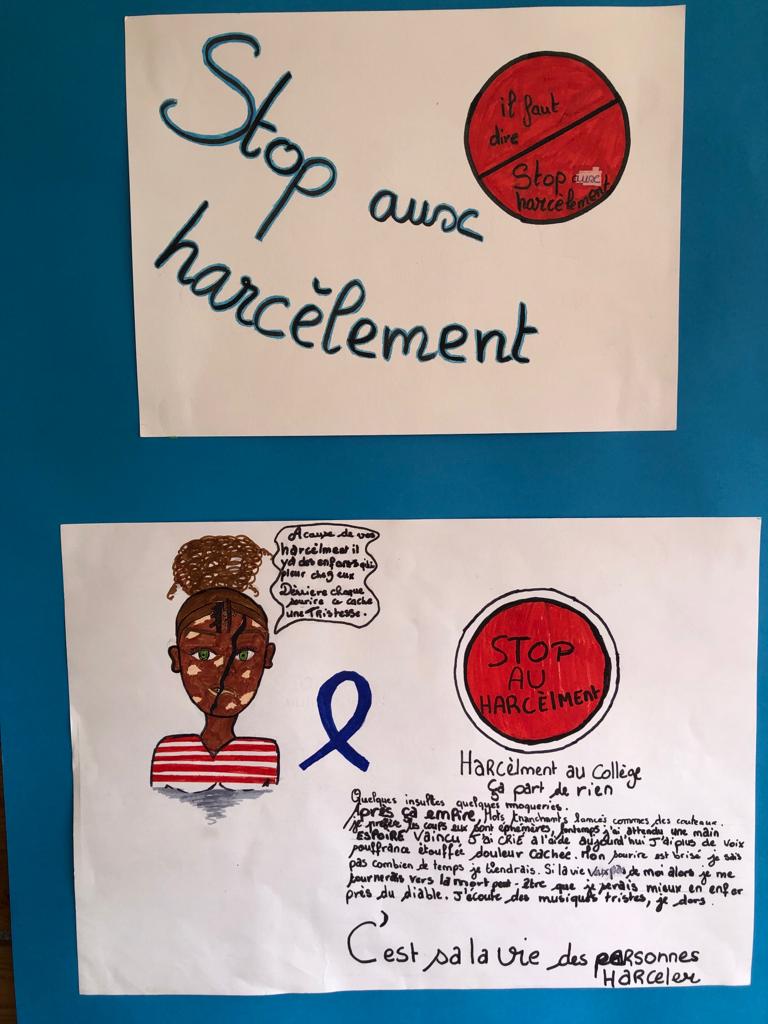 Stop aux
harcèlement
il faut
dire
Stop aux
harcelement
A cause de vos
harcèlment il
ya des enfants qui
pleur chez eux
Dèrriere chaque
sourire ce cache
une TRistesse.
STOP
AU
HARCÈLMENT
HaRCÈLment au Collège
Ça part de rien
Quelques insultes quelques moqueries.
Après ça empire, Mots tranchants lancés commes des couteaux.
je préfère les coups eux sont éphémères, longtemps j'ai attendu une main
ESPOIRE VAINCU J'ai CRIÉ à l'aide aujourd'hui J'ai plus de voix
souffrance étouffée douleur cachée. Mon sourire est brisé je sais
pas combien de temps je tiendrais. Si la vie veux pas de moi alors je me
tournerais vers la mort peut-être que je serais mieux en enfer
près du diable. J'écoute des musiques tristes, je dors.
C'est sa la vie des personnes
HARCELER